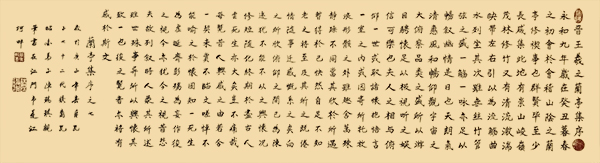 晉王羲之蘭亭集序
永和九年歲在癸丑暮春
之初會於會稽山陰之蘭
亭修禊事也群賢畢至少
長咸集此地有崇山峻嶺
茂林修竹又有清流激湍
映帶左右引以為流觴曲
水列坐其次雖無絲竹管
弦之盛一觴一詠亦足以
暢敘幽情是日也天朗氣
清惠風和暢仰觀宇宙之
大俯察品類之盛所以遊
目騁懷足以極視聽之娛
信可樂也夫人之相與俯
仰一世或取諸懷抱悟言
一室之內或因寄所託放
浪形骸之外雖趣舍萬殊
靜躁不同當其欣於所遇
暫得於己快然自足不知
老之將至及其所之既倦
情隨事遷感慨係之矣向
之所欣俛仰之間已為陳
跡猶不能不以之興懷況
修短隨化終期於盡古人
云死生亦大矣豈不痛哉
每覽昔人興感之由若合
一契未嘗不臨文嗟悼不
能喻之於懷固知一死生
為虛誕齊彭殤為妄作後
之視今亦猶今之視昔悲
夫故列敘時人錄其所述
雖世殊事異所以興懷其
致一也後之覽者亦將有
感於斯文
蘭亭集序之七